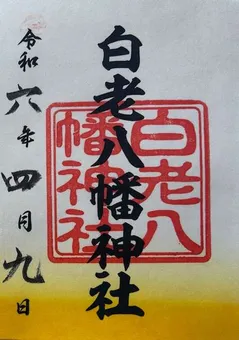 白老八幡神社
令和六年四月九日
白老八
幡神社